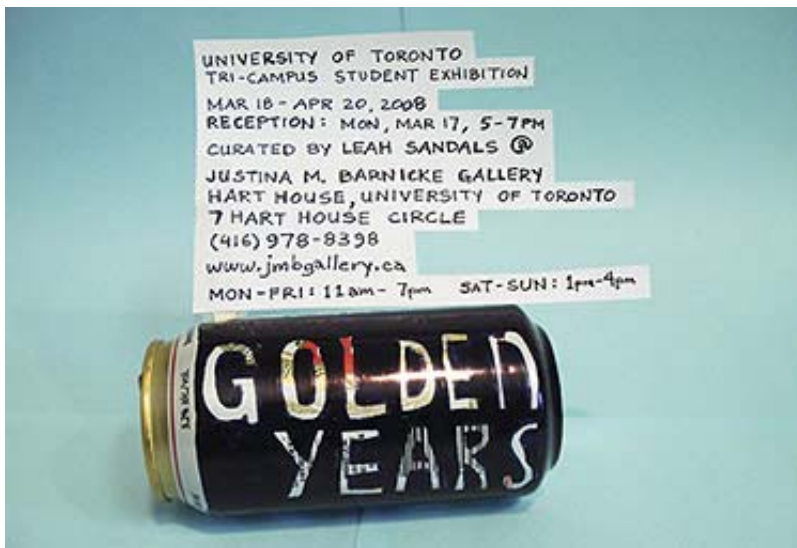 UNIVERSITY OF TORONTO
TRI-CAMPUS STUDENT EXHIBITION
MAR 18 - APR 20, 2008
RECEPTION: MON, MAR 17, 5-7PM
CURATED BY LEAH SANDALS @
JUSTINA M. BARNICKE GALLERY
HART HOUSE, UNIVERSITY OF TORONTO
7 HART HOUSE CIRCLE
(416) 978-8398
www.jmbgallery.ca
MON-FRI: 11am - 7pm SAT-SUN: 1pm-4pm
GOLDEN
YEARS